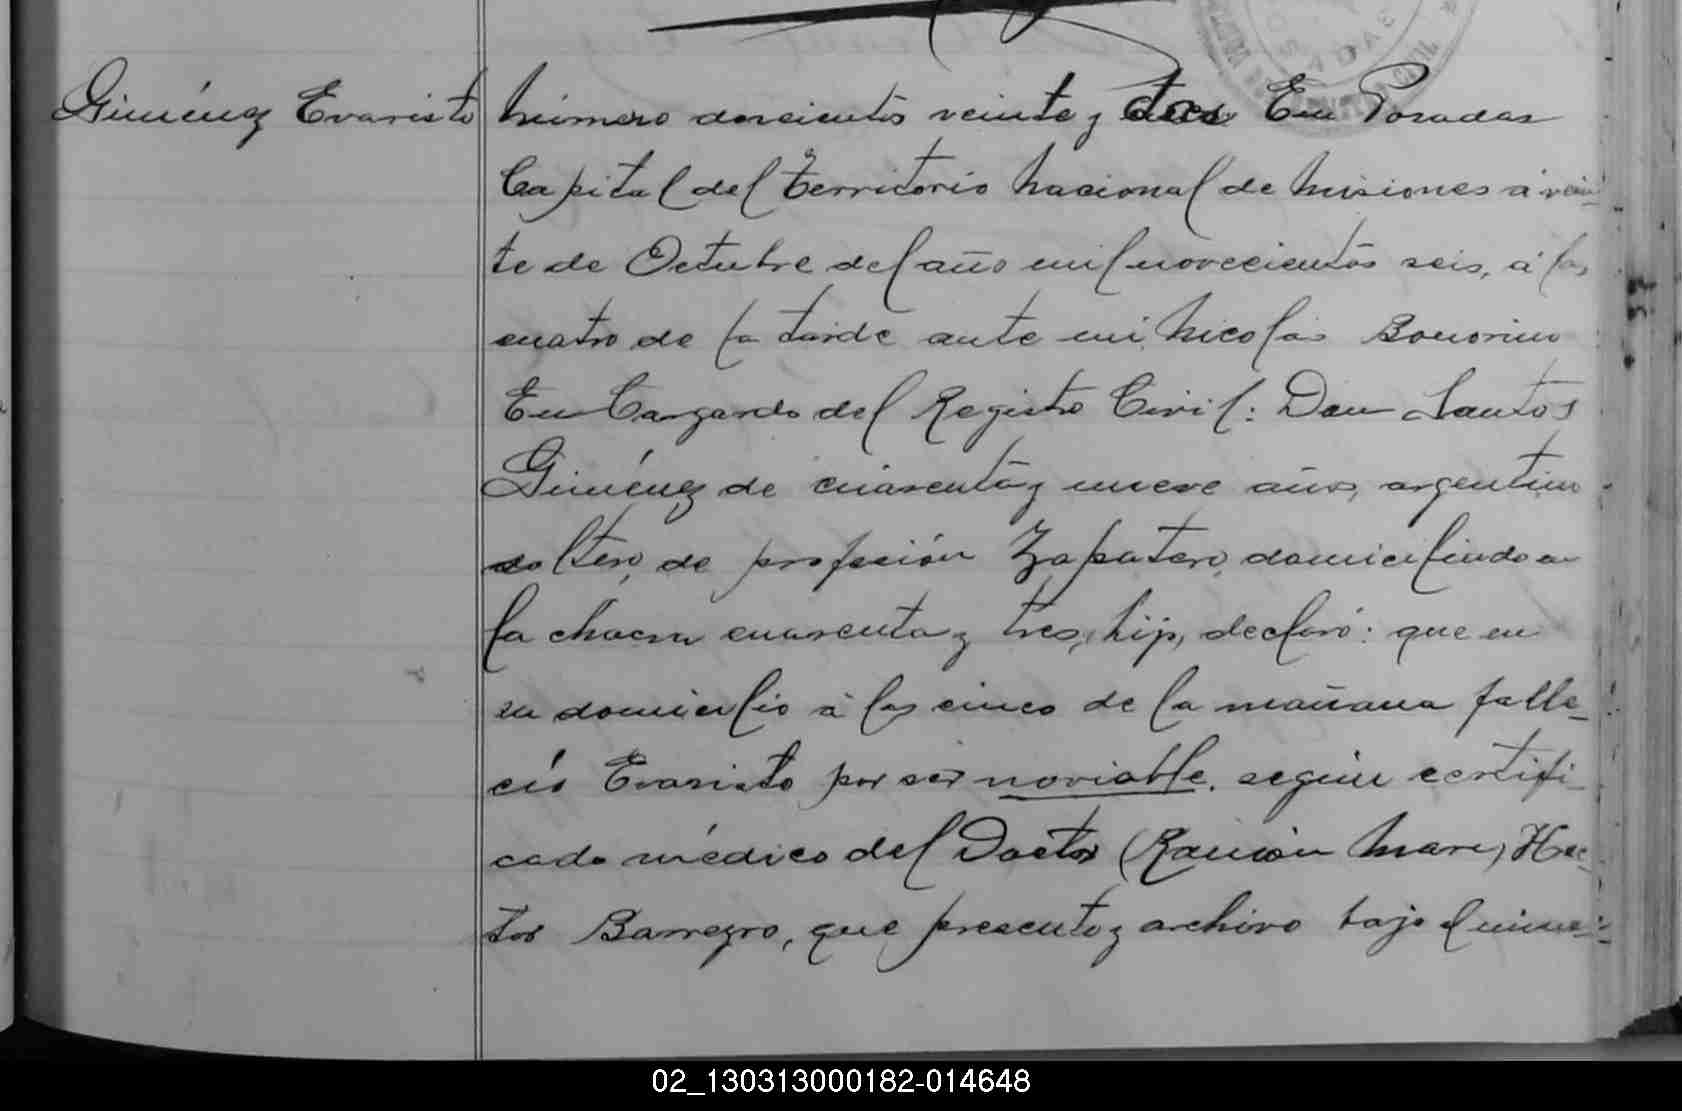 Giménez Evaristo
Número doscientos veinte y dos En Posadas
Capital del Territorio Nacional de Misiones á vein-
te de Octubre del año mil novecientos seis, á las
cuatro de la tarde ante mi, Nicolás Bonorino
En Cargardo del Registro Civil: Don Santos
Giménez de cuarenta y nueve años, argentino
soltero, de profesión Zapatero, domiciliado en
la chacra cuarenta y tres, hijo, declaró: que en
su domicilio á las cinco de la mañana falle-
ció Evaristo por ser noviable, según certifi-
cado médico del Doctor (Ramón Mare) Hec-
tor Barreyro, que presentó y archivo bajo el núme-
02_130313000182-014648